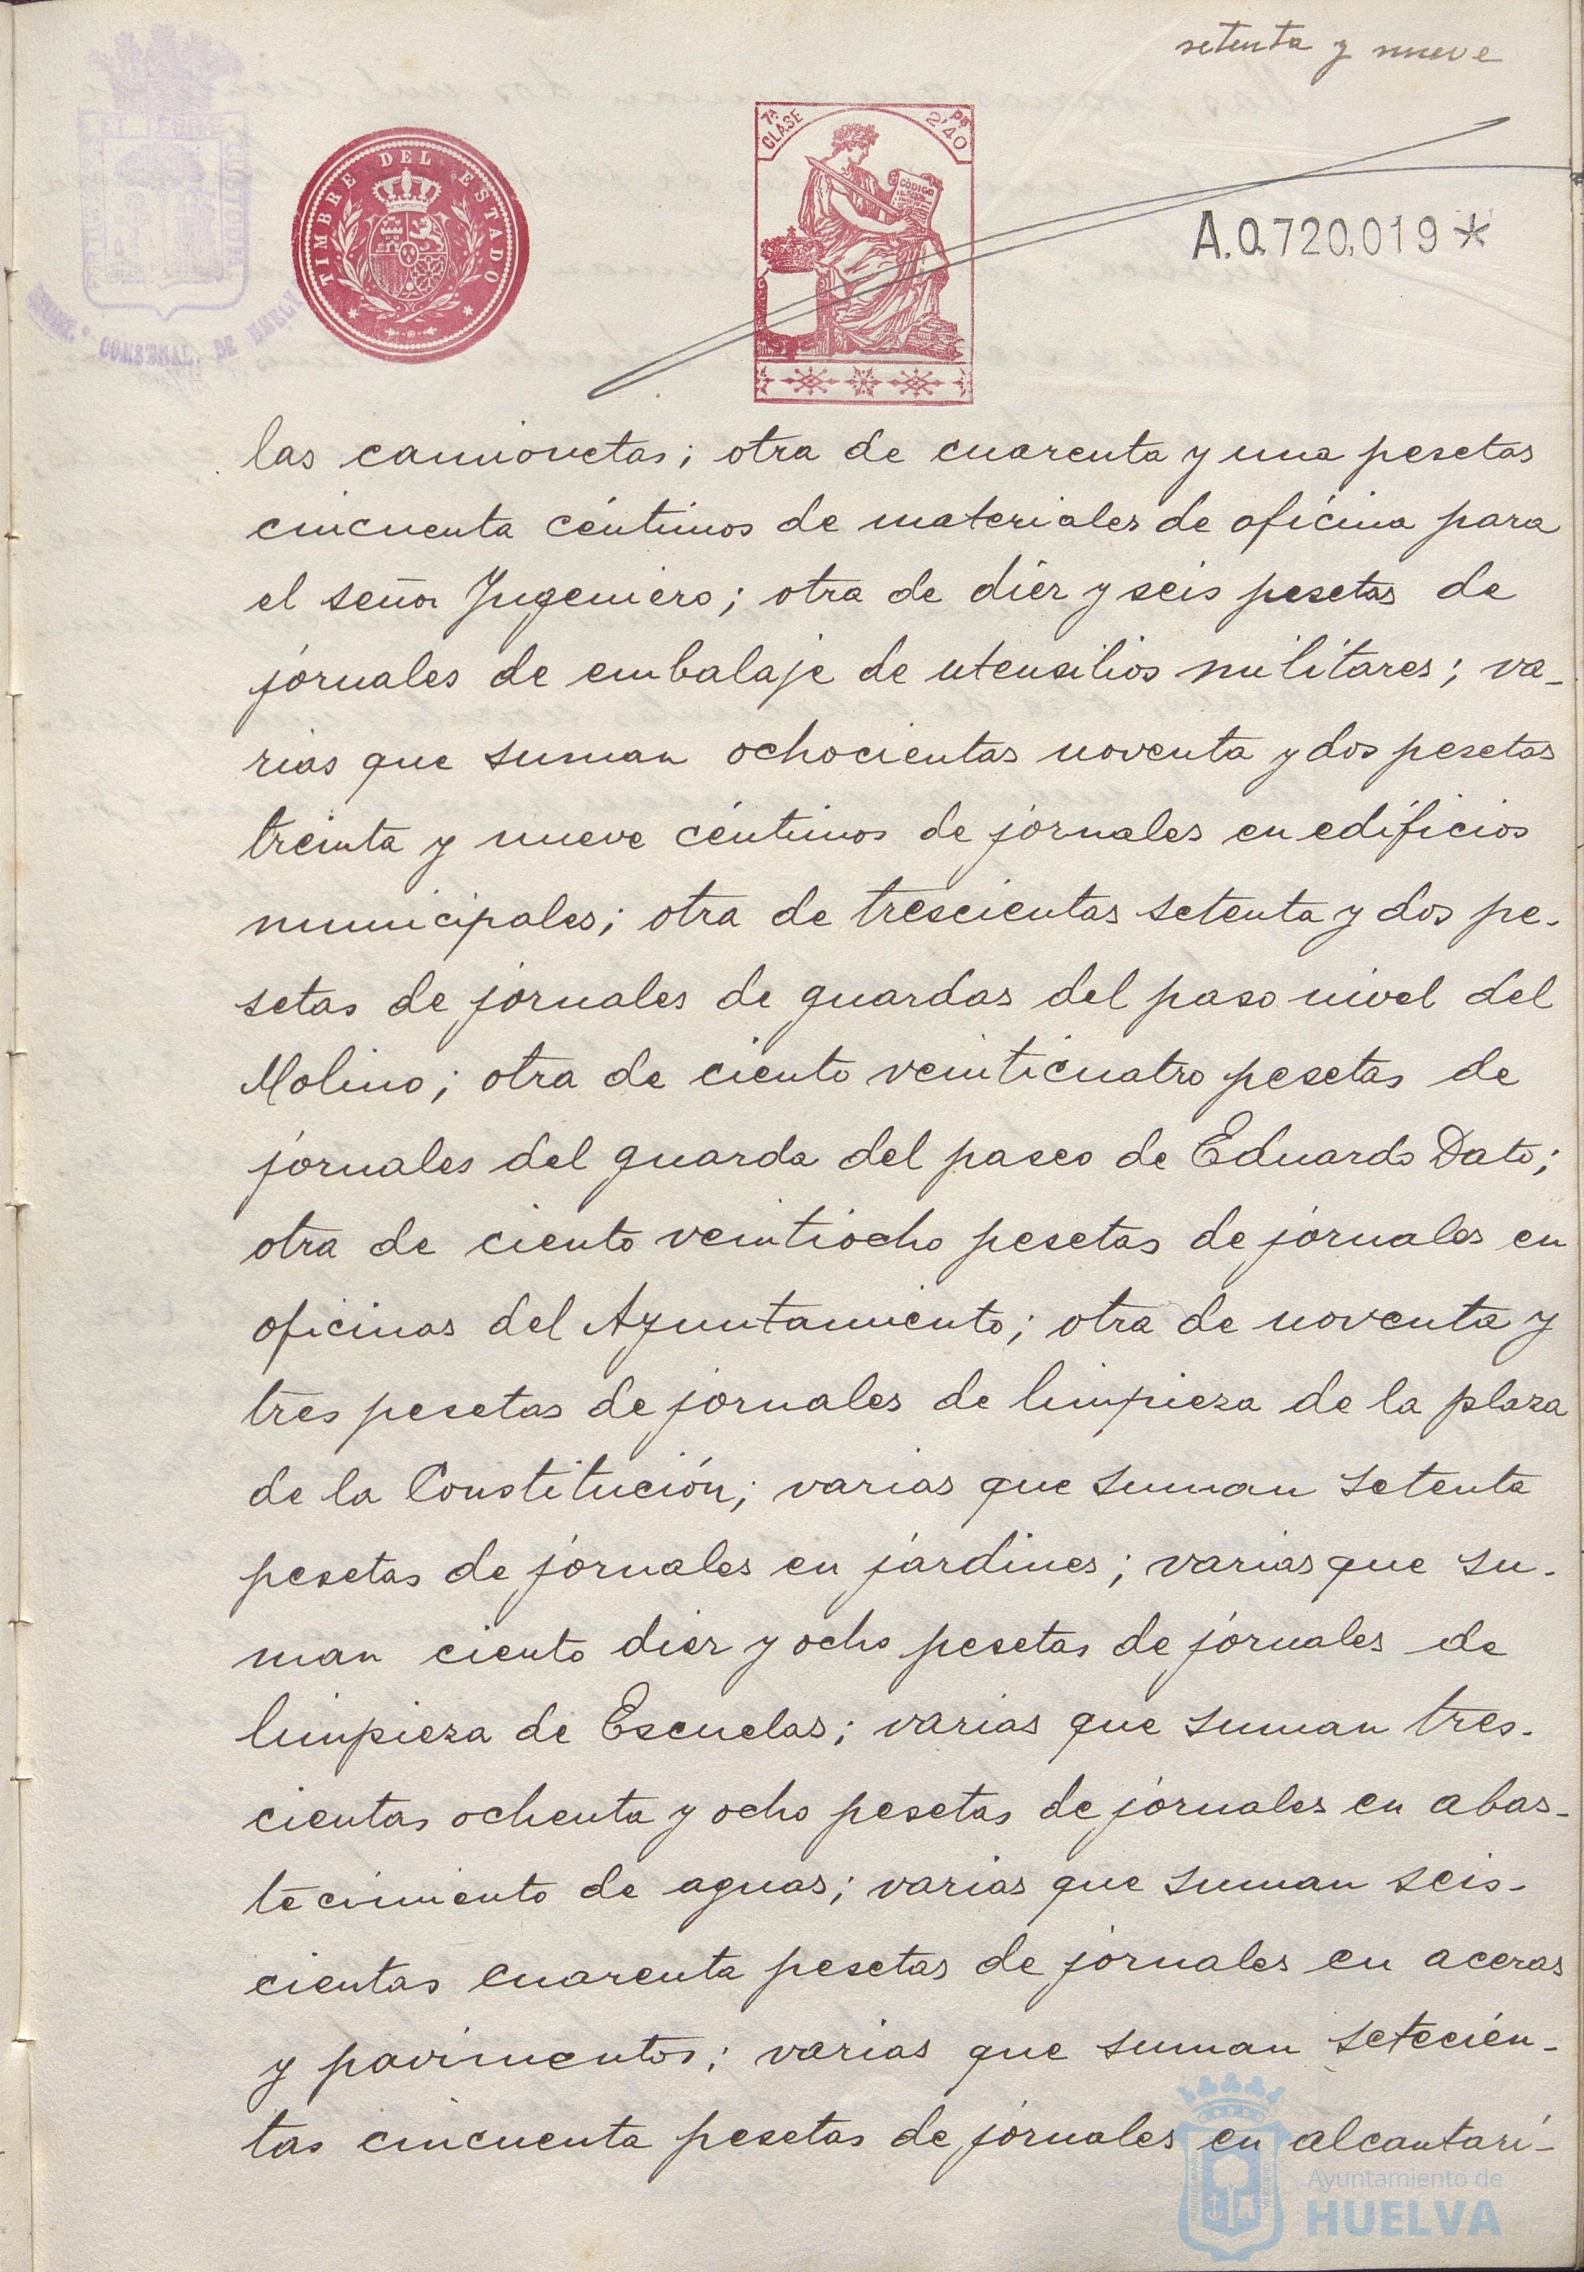 setenta y nueve
TIMBRE DEL ESTADO
7ª CLASE
2'40 Ps
CÓDIGO
A.0.720,019*
COMERCIAL. DE HUELVA
las camionetas; otra de cuarenta y una pesetas
cincuenta céntimos de materiales de oficina para
el señor Yngeniero; otra de diez y seis pesetas de
jornales de embalaje de utensilios militares; va-
rias que suman ochocientas noventa y dos pesetas
treinta y nueve céntimos de jornales en edificios
municipales; otra de trescientas setenta y dos pe-
setas de jornales de guardas del paso nivel del
Molino; otra de ciento veinticuatro pesetas de
jornales del guarda del paseo de Eduardo Dato;
otra de ciento veintiocho pesetas de jornales en
oficinas del Ayuntamiento; otra de noventa y
tres pesetas de jornales de limpieza de la plaza
de la Constitución; varias que suman setenta
pesetas de jornales en jardines; varias que su-
man ciento diez y ocho pesetas de jornales de
limpieza de Escuelas; varias que suman tres-
cientas ochenta y ocho pesetas de jornales en abas-
tecimiento de aguas; varias que suman seis-
cientas cuarenta pesetas de jornales en aceras
y pavimentos; varias que suman setecien-
tas cincuenta pesetas de jornales en alcantari-
Ayuntamiento de
HUELVA